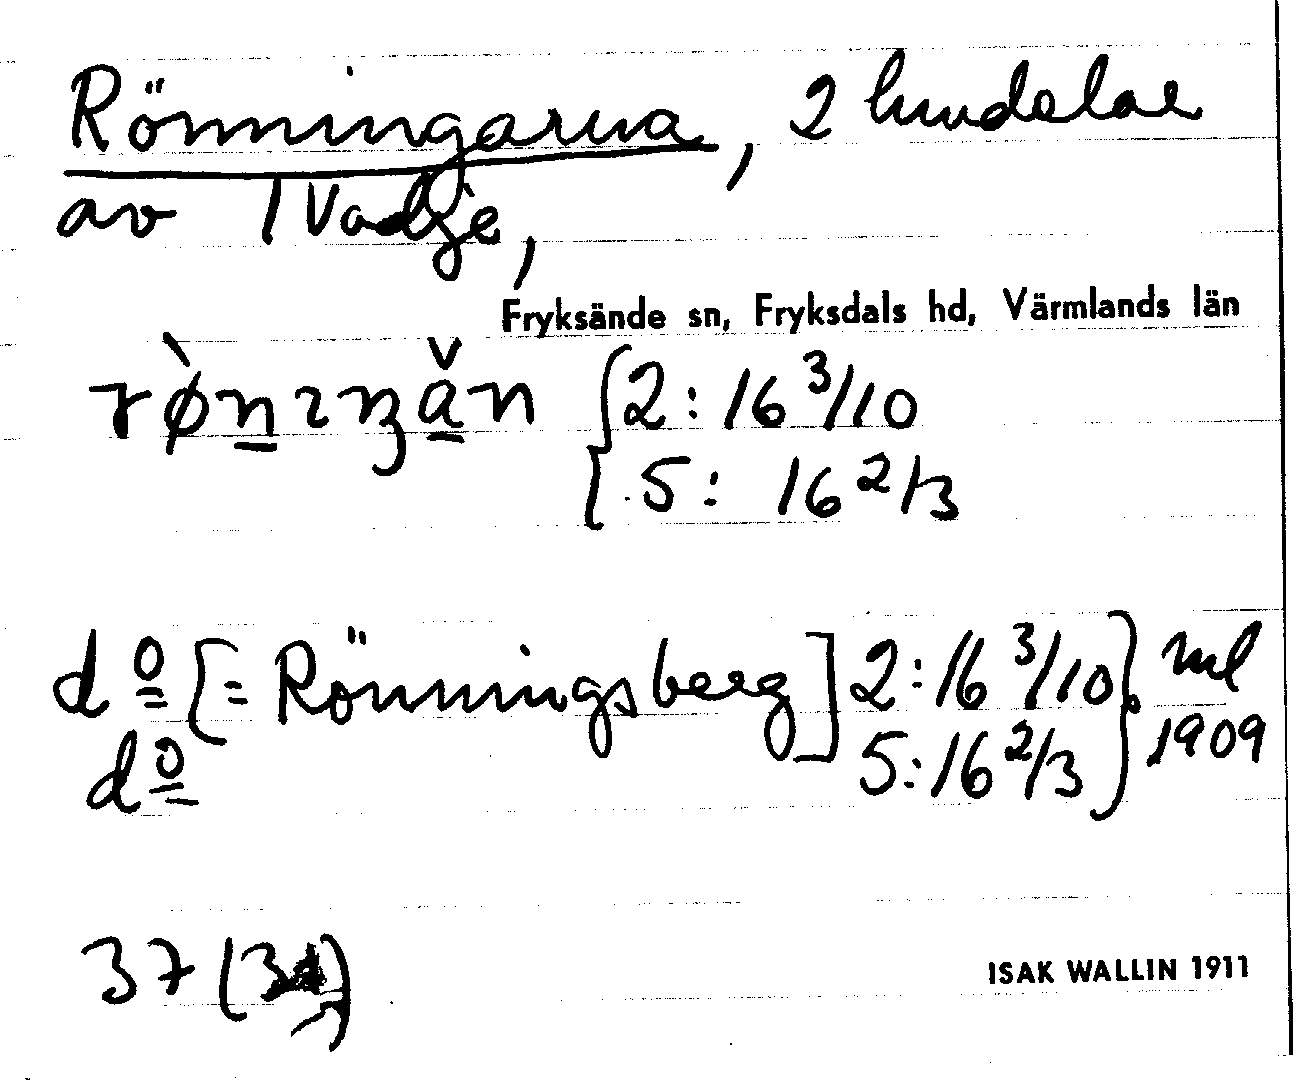 Rönningarna, 2 hmdelar
av 1 Vadje,
Fryksände sn, Fryksdals hd, Värmlands län
{2: 16 3/10
5: 16 2/3
do [= Rönningsberg] 2: 16 3/10 } ml
do 5: 16 2/3 1909
37 (3
ISAK WALLIN 1911